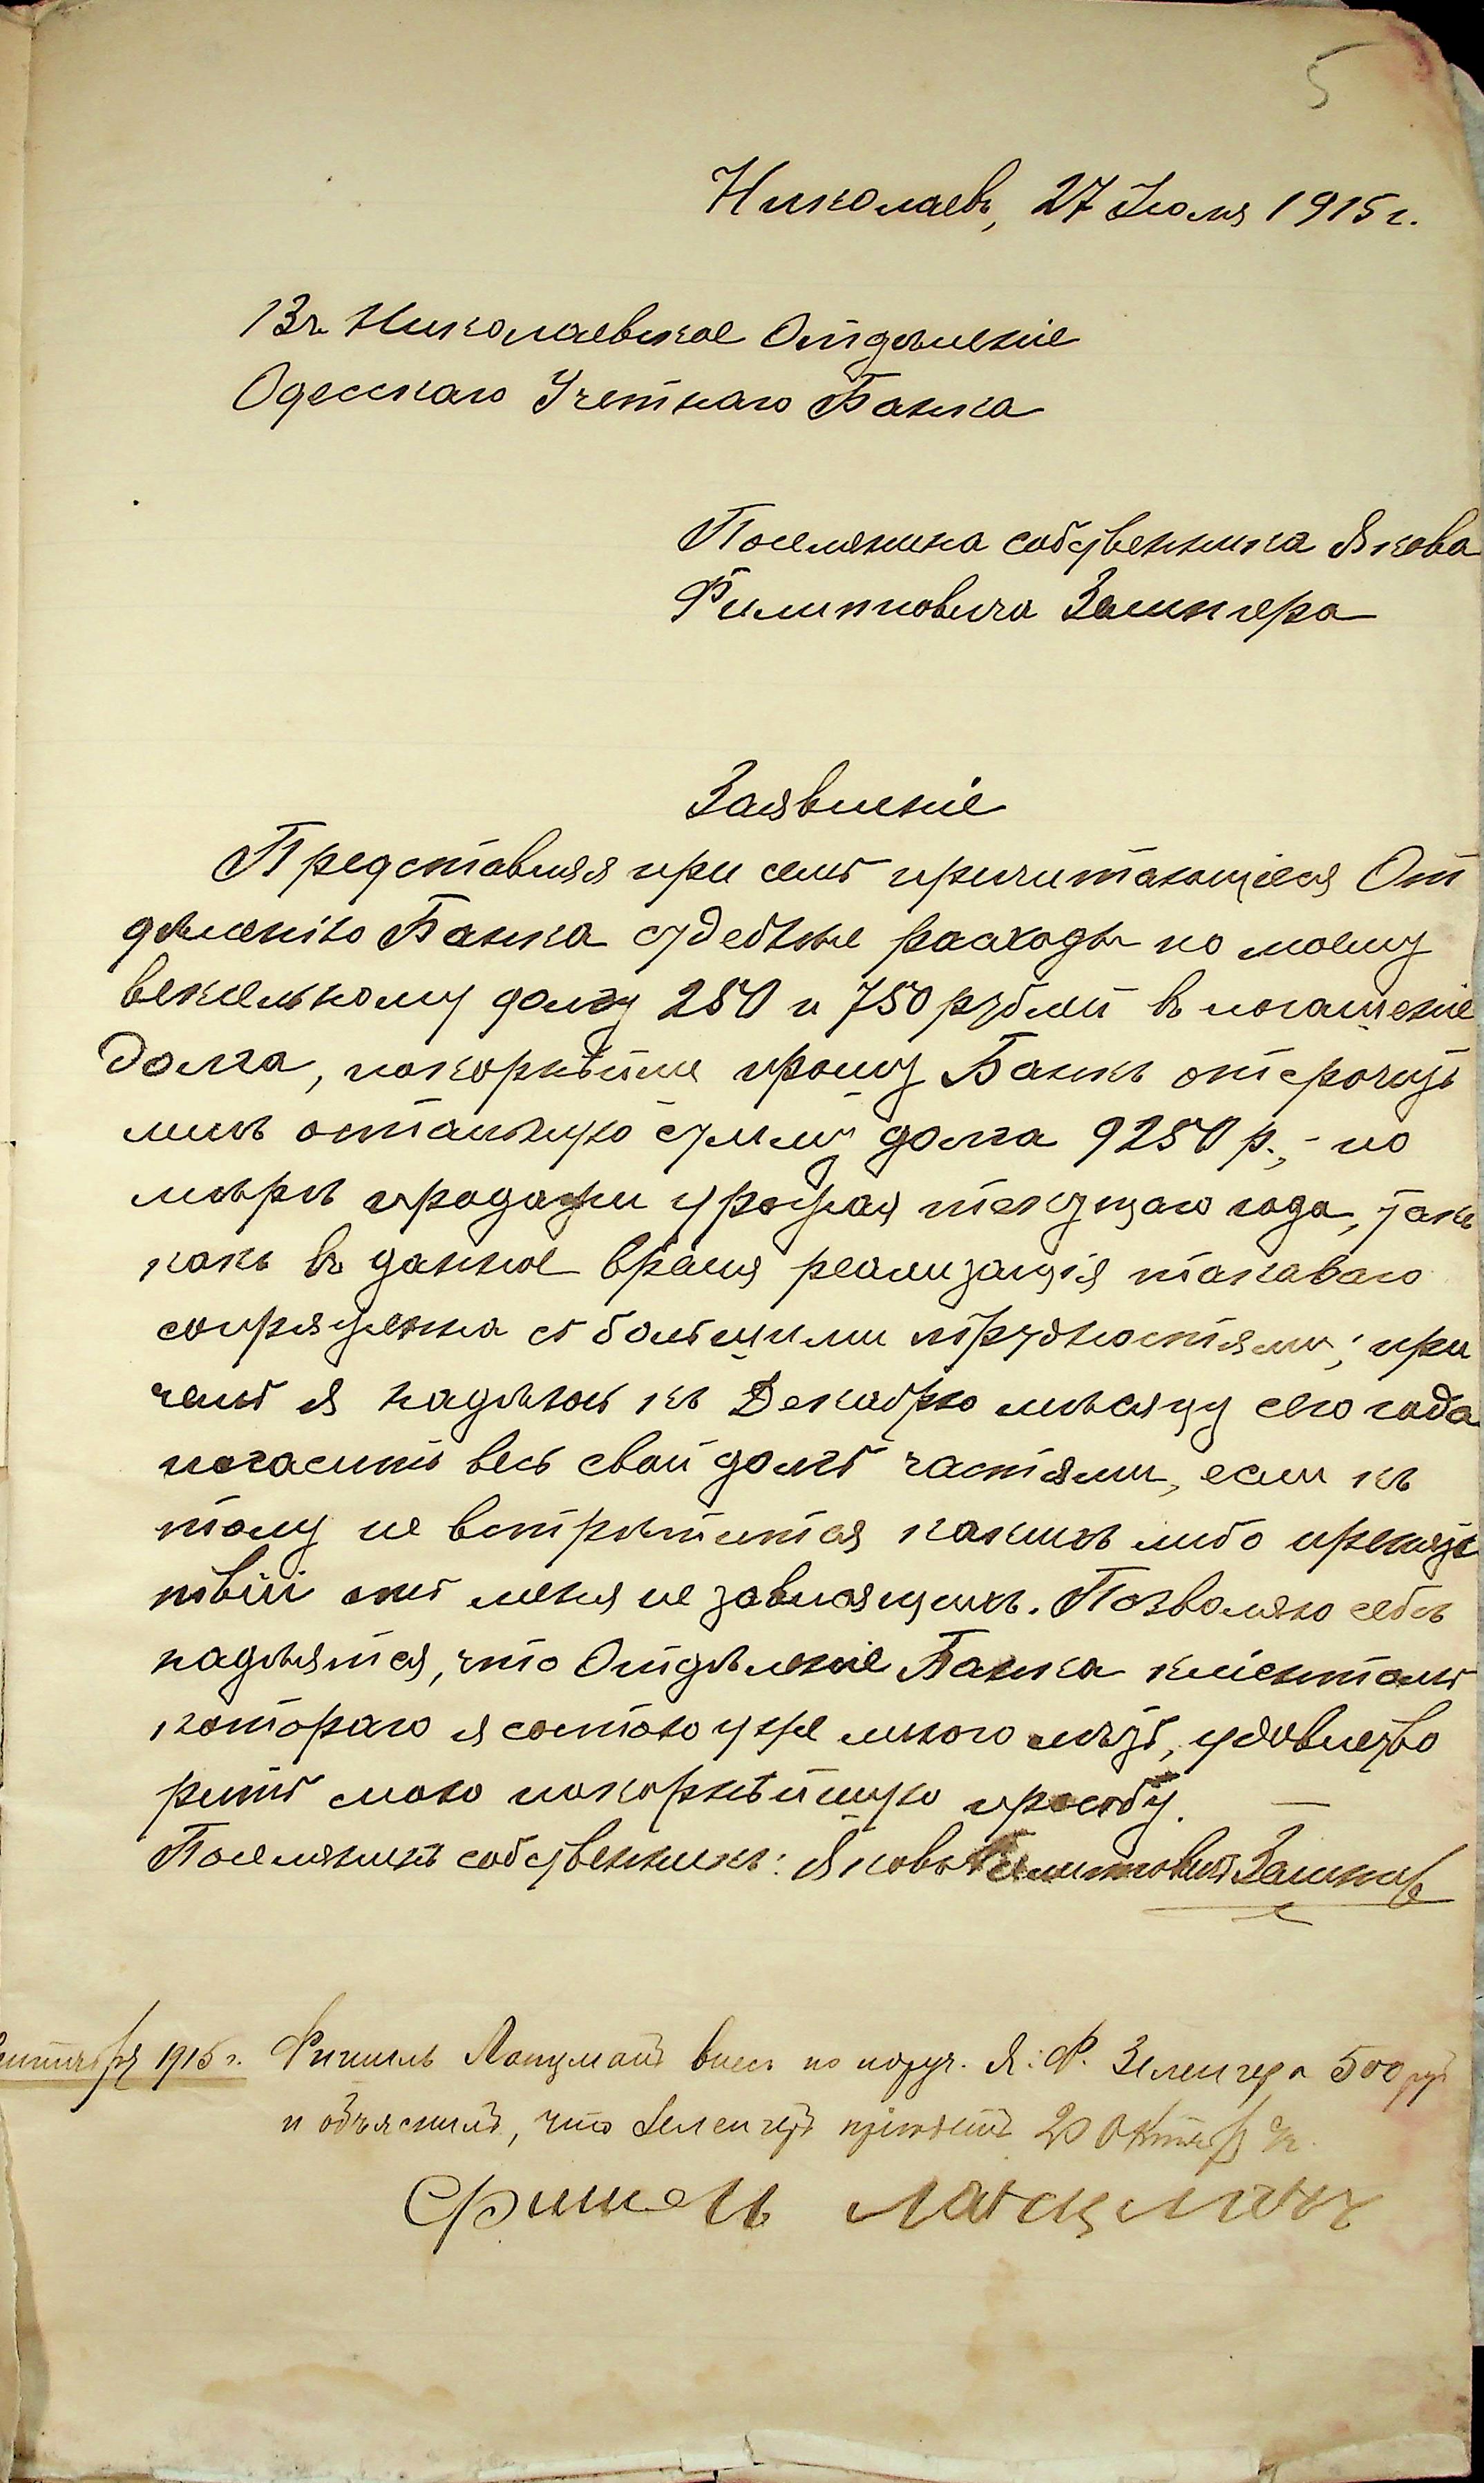 5
Николаевъ, 27 Іюля 1915 г.
Въ Николаевское Отдѣленіе
Одесскаго Учетнаго Банка
Поселянина собственника Якова
Филипповича Зелингера
Заявленіе
Представляя при семъ причитающіеся От
дѣленію Банка судебные расходы по моему
вексельному долгу 250 и 750 рублей въ погашеніе
долга, покорнѣйше прошу Банкъ отсрочить
мнѣ остальную сумму долга 9250 р., - по
мѣрѣ продажи урожая текущаго года, такъ
какъ въ данное время реализація таковаго
сопряжена съ большими трудностями; при
чемъ я надѣюсь къ Декабрю мѣсяцу сего года
погасить весь свой долгъ частями, если къ
тому не встрѣтится какихъ либо препятс
твій отъ меня не зависящихъ. Позволяю себѣ
надѣятся, что Отдѣленіе Банка кліентомъ
котораго я состою уже много лѣтъ, удовлетво
ритъ мою покорнѣйшую просьбу. —
Поселянинъ собственникъ: Яковъ Филипповичъ
1915 г. Фишель Лацманъ внесъ по поруч. Я. Ф. Зелингера 500 руб
и объяснилъ, что Зелингеръ пріѣдетъ 20 Октября
Фишель Лацманъ